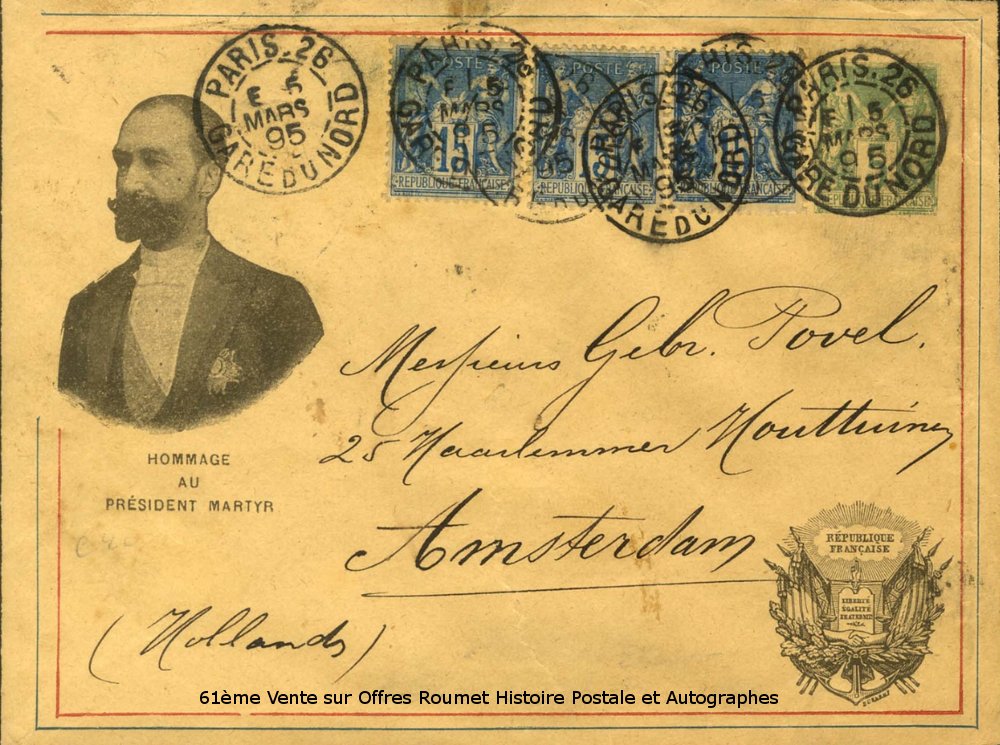 PARIS.26
E 5
MARS
95
GARE DU NORD
POSTES
15
REPUBLIQUE FRANÇAISE
PARIS.26
E 5
MARS
95
GARE DU NORD
REPUBLIQUE FRANÇAISE
PARIS.26
E
MARS
95
GARE DU NORD
POSTES
REPUBLIQUE FRANÇAISE
PARIS.26
E 5
MARS
95
GARE DU NORD
HOMMAGE
AU
PRÉSIDENT MARTYR
Messieurs Gebr. Povel.
25 Haarlemmer Houttuinen
Amsterdam
(Hollande)
RÉPUBLIQUE
FRANÇAISE
LIBERTÉ
ÉGALITÉ
FRATERNITÉ
61ème Vente sur Offres Roumet Histoire Postale et Autographes